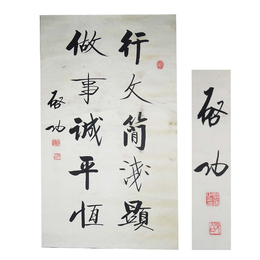 行文简浅显
做事诚平恒
启功
启功